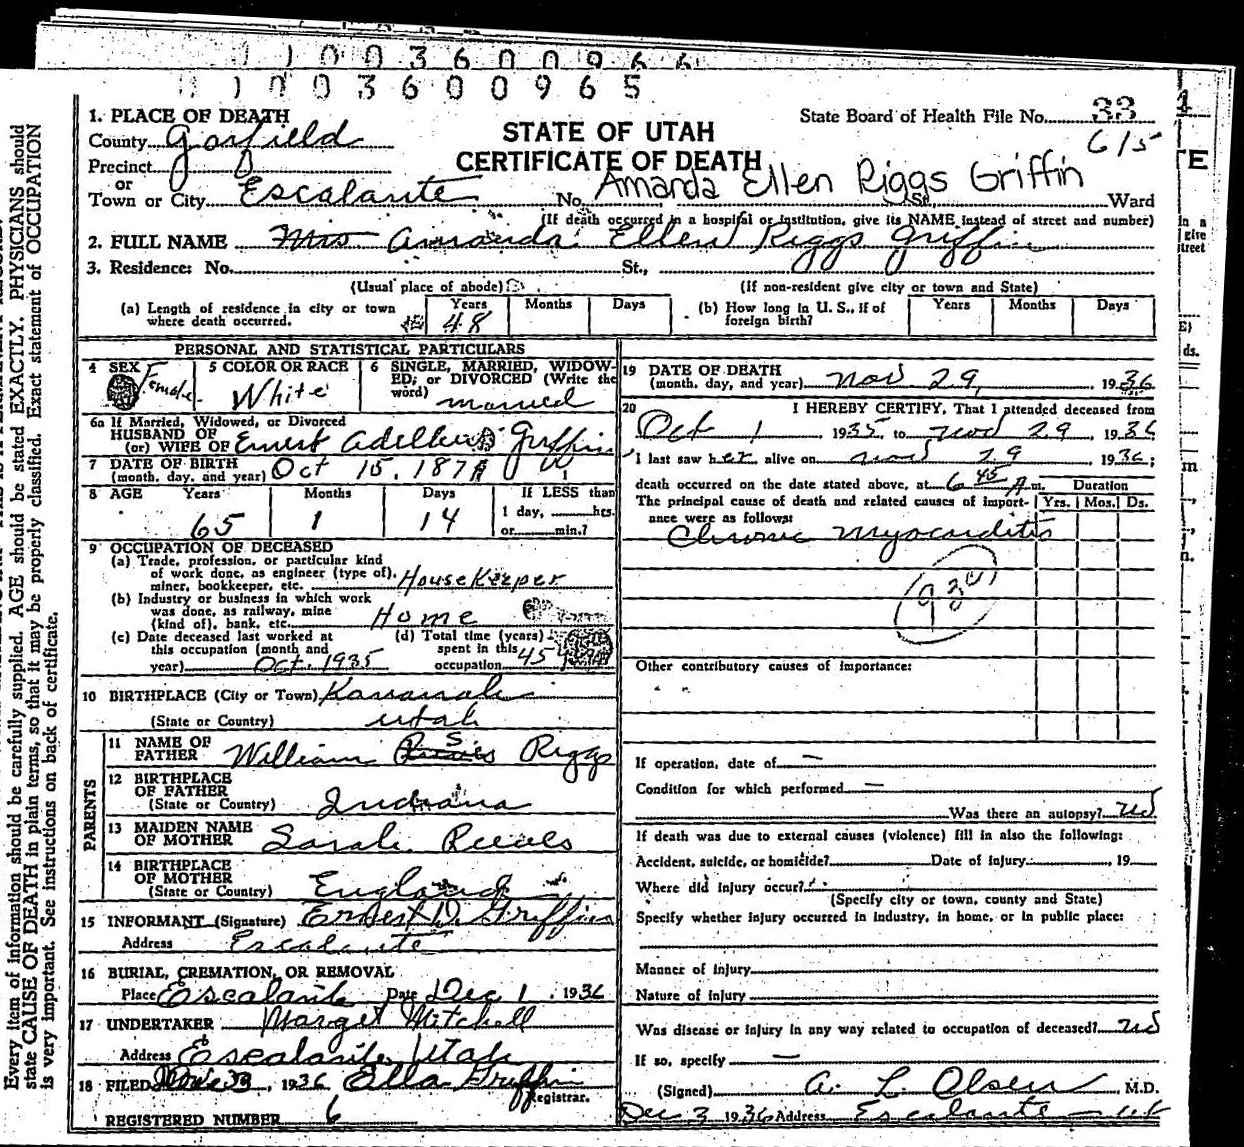 1 1 0 0 3 6 0 0 9 6 6
1 1 0 0 3 6 0 0 9 6 5
1. PLACE OF DEATH
County Garfield
Precinct
or
Town or City Escalante No. St., Ward
STATE OF UTAH
CERTIFICATE OF DEATH
State Board of Health File No. 33
615
Amanda Ellen Riggs Griffin
(If death occurred in a hospital or institution, give its NAME instead of street and number)
2. FULL NAME Mrs Amanda Ellen Riggs Griffin
3. Residence: No. St.,
(Usual place of abode) (If non-resident give city or town and State)
(a) Length of residence in city or town where death occurred. Years 48 Months Days
(b) How long in U. S., if of foreign birth? Years Months Days
PERSONAL AND STATISTICAL PARTICULARS
4 SEX Female
5 COLOR OR RACE White
6 SINGLE, MARRIED, WIDOWED, or DIVORCED (Write the word) married
6a If Married, Widowed, or Divorced
HUSBAND OF
(or) WIFE OF Ernest Griffin
7 DATE OF BIRTH
(month, day, and year) Oct 15, 1871
8 AGE Years 65 Months 1 Days 14 If LESS than 1 day, hrs. or min.?
9 OCCUPATION OF DECEASED
(a) Trade, profession, or particular kind
of work done, as engineer (type of),
miner, bookkeeper, etc. HouseKeeper
(b) Industry or business in which work
was done, as railway, mine
(kind of), bank, etc. Home
(c) Date deceased last worked at
this occupation (month and
year) Oct. 1935
(d) Total time (years)
spent in this
occupation 45
10 BIRTHPLACE (City or Town) Kanarrah
(State or Country) Utah
PARENTS
11 NAME OF
FATHER William S Riggs
12 BIRTHPLACE
OF FATHER
(State or Country) Indiana
13 MAIDEN NAME
OF MOTHER Sarah Reeves
14 BIRTHPLACE
OF MOTHER
(State or Country) England
15 INFORMANT (Signature) Ernest D. Griffin
Address Escalante
16 BURIAL, CREMATION, OR REMOVAL
Place Escalante Date Dec 1, 1936
17 UNDERTAKER Marget Mitchell
Address Escalante, Utah
18 FILED Dec 3, 1936 Ella Griffin
Registrar.
REGISTERED NUMBER 6
19 DATE OF DEATH
(month, day, and year) Nov 29, 1936
20 I HEREBY CERTIFY, That I attended deceased from
Oct 1 1935, to Nov 29 1936
I last saw her alive on Nov 29 1936;
death occurred on the date stated above, at 6 45 A m.
The principal cause of death and related causes of importance were as follows:
Duration
Yrs. Mos. Ds.
Chronic Myocarditis
Other contributory causes of importance:
If operation, date of —
Condition for which performed —
Was there an autopsy? No
If death was due to external causes (violence) fill in also the following:
Accident, suicide, or homicide? Date of injury , 19
Where did injury occur?
(Specify city or town, county and State)
Specify whether injury occurred in industry, in home, or in public place:
Manner of injury
Nature of injury
Was disease or injury in any way related to occupation of deceased? No
If so, specify —
(Signed) A. L. Olsen M.D.
Dec 3 1936 Address Escalante - Ut
Every item of information should be carefully supplied. AGE should be stated EXACTLY. PHYSICIANS should
state CAUSE OF DEATH in plain terms, so that it may be properly classified. Exact statement of OCCUPATION
is very important. See instructions on back of certificate.